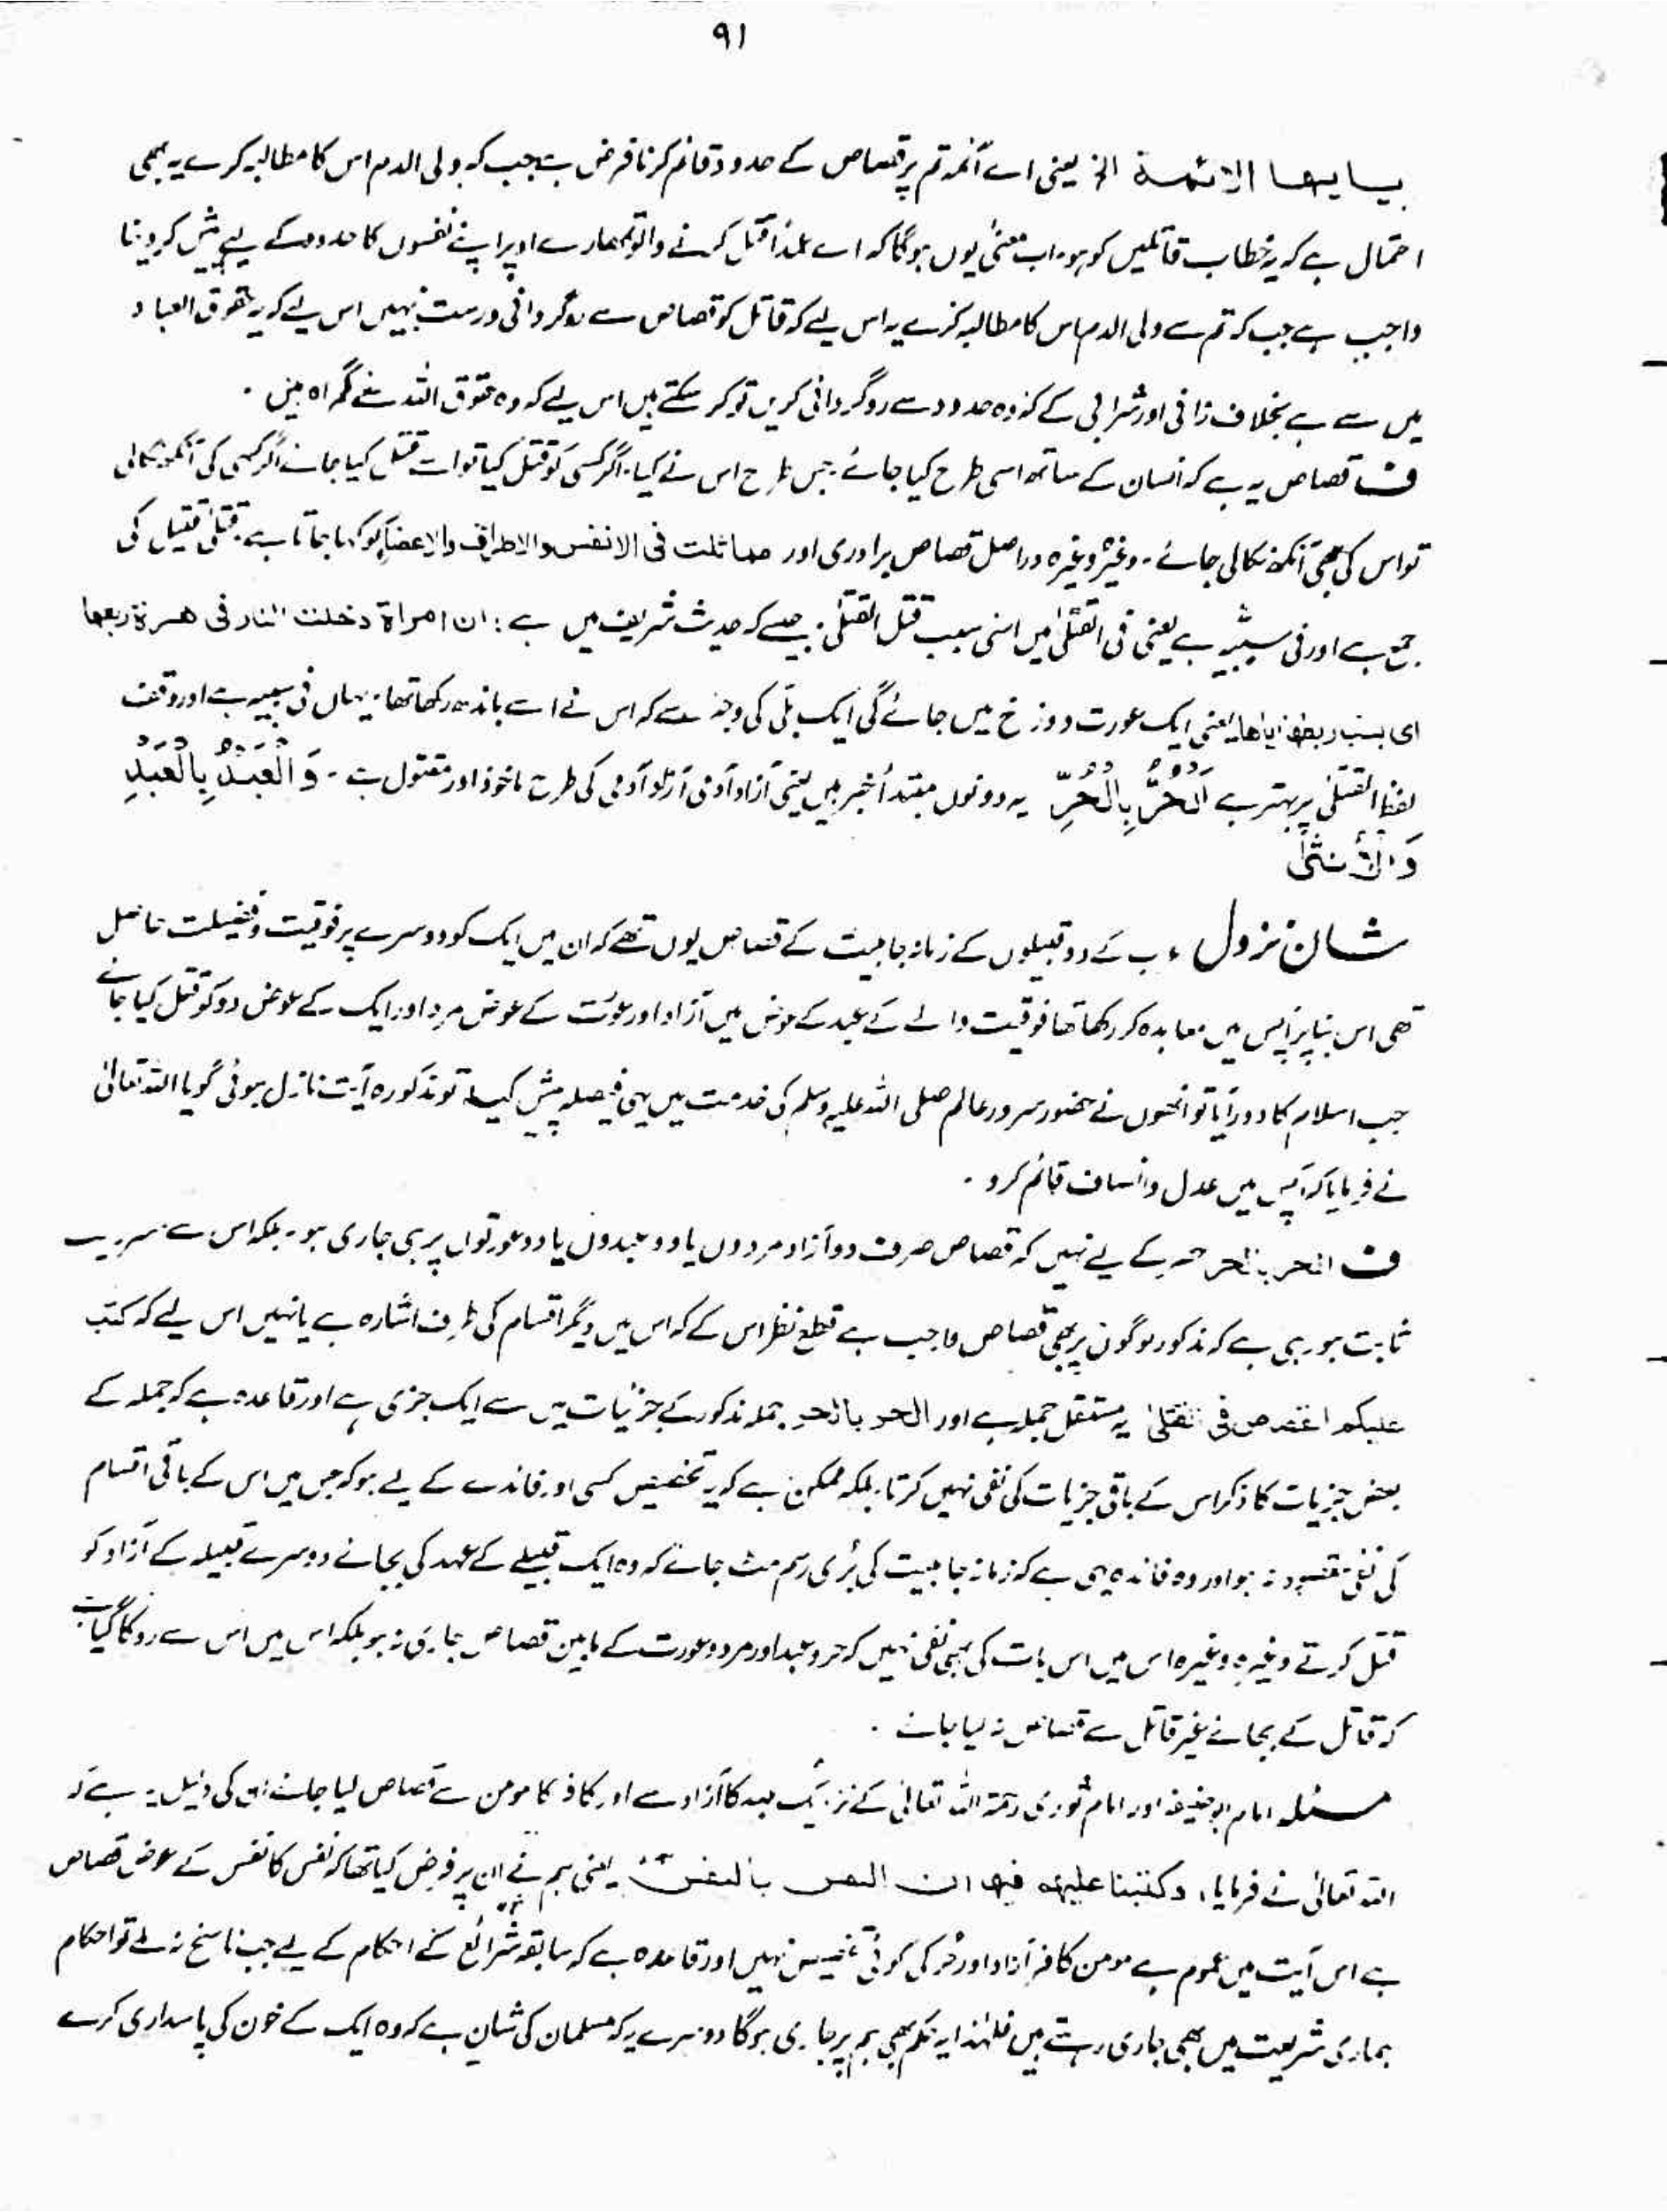 ۹۱
یایھا الائمۃ الخ یعنی اے ائمہ تم پر قصاص کے حدود قائم کرنا فرض ہے جب کہ ولی الدم اس کا مطالبہ کرے یہ بھی
احتمال ہے کہ یہ خطاب قاتلیں کو ہو۔ اب معنیٰ یوں ہوگا کہ اے عمداً قتل کرنے والو تمھارے اوپر اپنے نفسوں کا حدود کے لیے پیش کر دینا
واجب ہے جب کہ تم سے ولی الدم اس کا مطالبہ کرے یہ اس لیے کہ قاتل کو قصاص سے روگردانی درست نہیں اس لیے کہ یہ حقوق العباد
میں سے ہے بخلاف زانی اور شرابی کے کہ وہ حدود سے روگردانی کریں تو کر سکتے ہیں اس لیے کہ وہ حقوق اللہ سے گمراہ ہیں ۔
ف قصاص یہ ہے کہ انسان کے ساتھ اسی طرح کیا جائے۔ جس طرح اس نے کیا۔ اگر کسی کو قتل کیا تو اسے قتل کیا جائے اگر کسی کی آنکھ نکالی
تو اس کی بھی آنکھ نکالی جائے۔ وغیرہ وغیرہ دراصل قصاص برادری اور مماثلت فی الانفس والاطراف والاعضاء کو کہا جاتا ہے۔ قتلیٰ قتیل کی
جمع ہے اور فی سببیہ ہے یعنی فی القتلیٰ میں اسی سبب قتل القتلیٰ۔ جیسے کہ حدیث شریف میں ہے : ان امراۃ دخلت النار فی ھرۃ ربطھا
ای بسبب ربطھا ایاھا یعنی ایک عورت دوزخ میں جائے گی ایک بلی کی وجہ سے کہ اس نے اسے باندھ رکھا تھا۔ یہاں فی سببیہ ہے اور وقف
لفظ القتلیٰ پر بہتر ہے اَلْحُرُّ بِالْحُرِّ یہ دونوں مبتدأ خبر ہیں یعنی آزاد آدمی آزاد آدمی کی طرح ماخوذ اور مقتول ہے۔ وَالْعَبْدُ بِالْعَبْدِ
وَالْاُنْثٰی
شان نزول، عرب کے دو قبیلوں کے زمانہ جاہلیت کے قصاص یوں تھے کہ ان میں ایک کو دوسرے پر فوقیت و فضیلت حاصل
تھی اس بنا پر آپس میں معاہدہ کر رکھا تھا فوقیت والے کے عبد کے عوض میں آزاد اور عورت کے عوض مرد اور ایک کے عوض دو کو قتل کیا جائے
جب اسلام کا دور آیا تو انھوں نے حضور سرور عالم صلی اللہ علیہ وسلم کی خدمت میں یہی فیصلہ پیش کیا۔ تو مذکورہ آیت نازل ہوئی گویا اللہ تعالیٰ
نے فرمایا کہ آپس میں عدل وانصاف قائم کرو ۔
ف الحر بالحر حصر کے لیے نہیں کہ قصاص صرف دو آزاد مردوں یا دو عبدوں یا دو عورتوں پر ہی جاری ہو۔ بلکہ اس سے
ثابت ہو رہی ہے کہ مذکور لوگوں پر بھی قصاص واجب ہے قطع نظر اس کے کہ اس میں دیگر اقسام کی طرف اشارہ ہے یا نہیں اس لیے کہ کتب
علیکم القصاص فی القتلیٰ یہ مستقل جملہ ہے اور الحر بالحر جملہ مذکور کے جزئیات میں سے ایک جزی ہے اور قاعدہ ہے کہ جملہ کے
بعض جزیات کا ذکر اس کے باقی جزیات کی نفی نہیں کرتا۔ بلکہ ممکن ہے کہ یہ تخصیص کسی اور فائدے کے لیے ہو کہ جس میں اس کے باقی اقسام
کی نفی مقصود نہ ہو اور وہ فائدہ یہی ہے کہ زمانہ جاہلیت کی بُری رسم مٹ جائے کہ وہ ایک قبیلے کے عہد کی بجائے دوسرے قبیلہ کے آزاد کو
قتل کرتے وغیرہ وغیرہ اس میں اس بات کی بھی نفی نہیں کہ حر و عبد اور مرد و عورت کے مابین قصاص جاری نہ ہو بلکہ اس میں اس سے روکا گیا ہے
کہ قاتل کے بجائے غیر قاتل سے قصاص نہ لیا جائے ۔
مسئلہ امام ابوحنیفہ اور امام ثوری رحمۃ اللہ تعالیٰ کے نزدیک عبد کا آزاد سے اور کافر کا مومن سے قصاص لیا جائے ان کی دلیل یہ ہے کہ
اللہ تعالیٰ نے فرمایا، وکتبنا علیھم فیھا ان النفس بالنفس یعنی ہم نے ان پر فرض کیا تھا کہ نفس کا نفس کے عوض قصاص
ہے اس آیت میں عموم ہے مومن کافر آزاد اور حُر کی کوئی تخصیص نہیں اور قاعدہ ہے کہ سابقہ شرائع کے احکام کے لیے جب ناسخ نہ ملے تو احکام
ہماری شریعت میں بھی جاری رہتے ہیں فلہٰذا یہ حکم بھی ہم پر جاری ہوگا دوسرے یہ کہ مسلمان کی شان ہے کہ وہ ایک کے خون کی پاسداری کرے